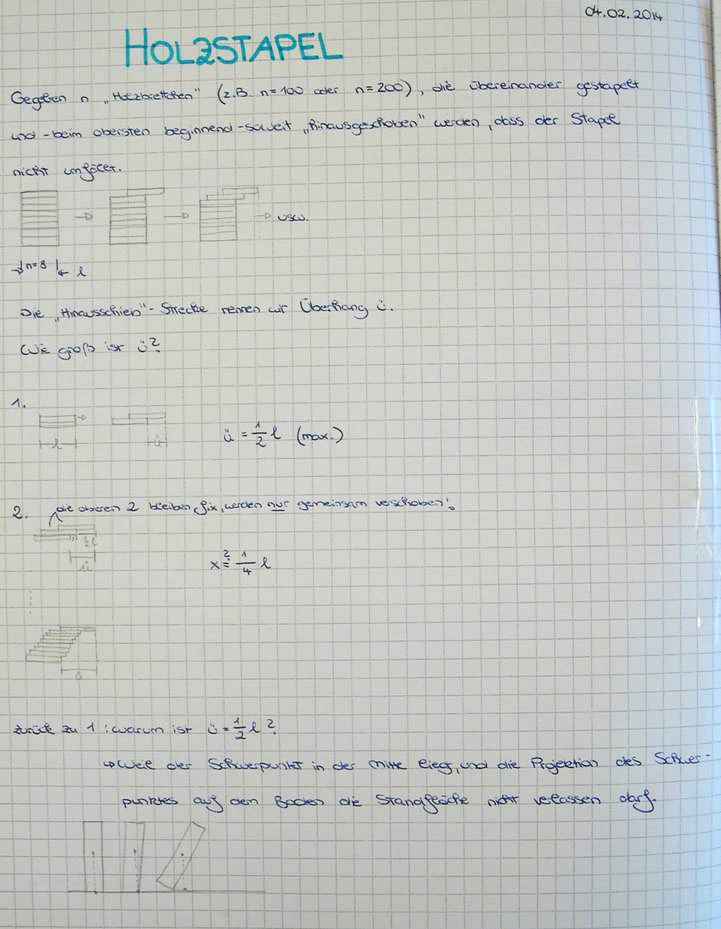 04.02.2014
HOLZSTAPEL
Gegeben n „Holzbrettchen" (z.B. n=100 oder n=200), die übereinander gestapelt
und -beim obersten beginnend- soweit „hinausgeschoben" werden, dass der Stapel
nicht umfällt.
usw.
n=8 l
Die „Hinausschieb"-Strecke nennen wir Überhang ü.
Wie groß ist ü?
1.
l ü
ü = 1/2 l (max.)
2. die oberen 2 bleiben fix, werden nur gemeinsam verschoben!
1/2 l
ü
x ?= 1/4 l
ü
zurück zu 1: warum ist ü = 1/2 l?
↳ Weil der Schwerpunkt in der Mitte liegt, und die Projektion des Schwer-
punktes auf den Boden die Standfläche nicht verlassen darf.